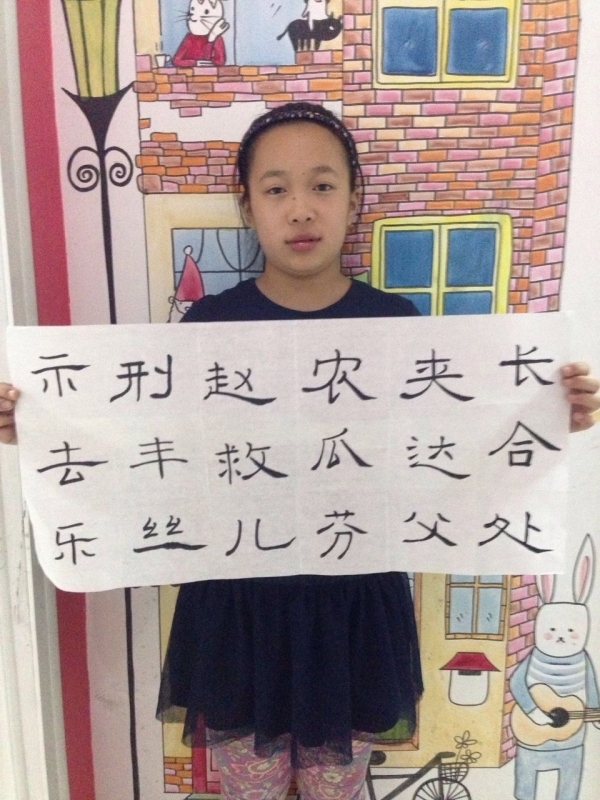 示刑赵农夹长
去丰救瓜达合
乐丝儿芬父处